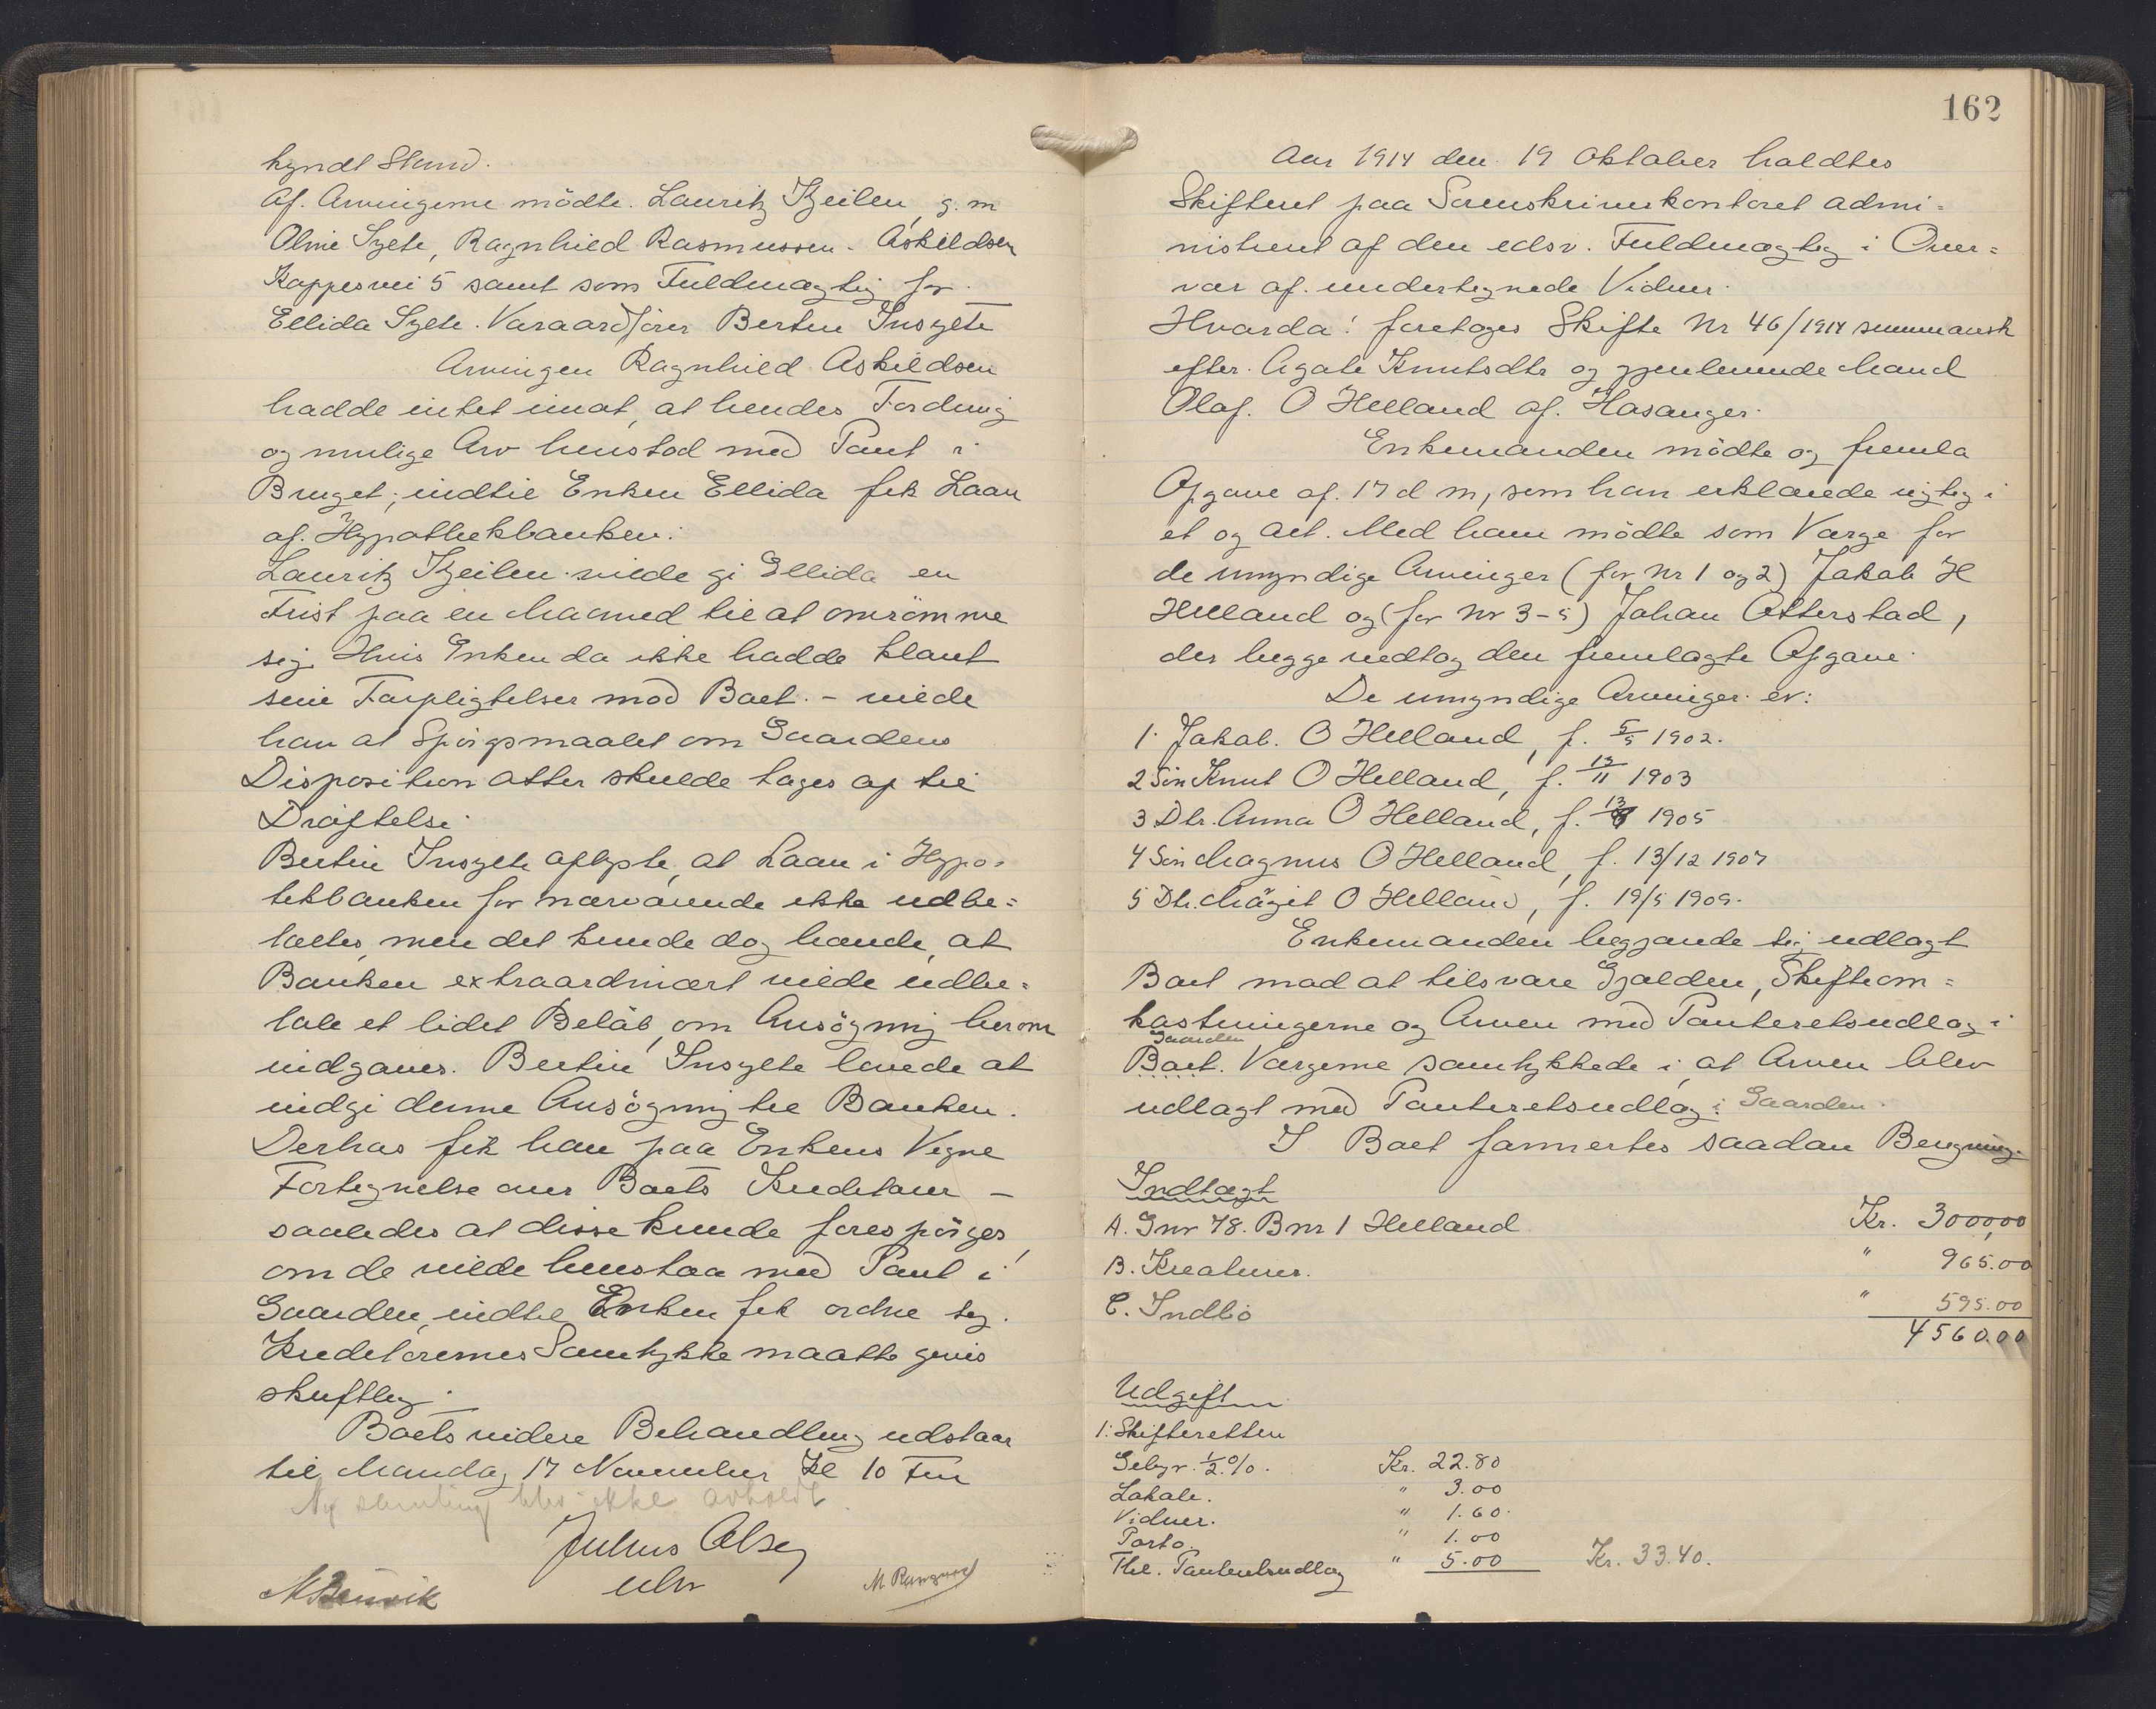 kyndt Stund.
Af. Arvingerne mödte. Lauritz Kjeilen, g. m
Oline Syete, Ragnhild Rasmussen. Askildsen
Kappesvei 5 samt som Fuldmægtig for
Ellida Syete. Varaordfører Bertin Insyete
Arvingen Ragnhild Askildsen
hadde intet imot, at hendes Fordring
og mulige Arv henstod med Pant i
Bruget, indtil Enken Ellida fik Laan
af. Hypothekbanken.
Lauritz Kjeilen vilde gi Ellida en
Frist paa en Maaned til at omrömme
sig. Hvis Enken da ikke hadde klart
sine Forpligtelser mod Boet. - vilde
han at Spörgsmaalet om Gaardens
Disposition atter skulde tages op til
Dröftelse.
Bertin Insyete oplyste, at Laan i Hypo=
tekbanken for nærværende ikke udbe=
taltes, men det kunde dog hænde, at
Banken extraordinært vilde udbe=
tale et lidet Beløb, om Ansögning herom
indgaves. Bertin Insyete lovede at
indgi denne Ansögning til Banken.
Derhos fik han paa Enkens Vegne
Fortegnelse over Boets Kreditorer -
saaledes at disse kunde forespörges,
om de vilde henstaa med Pant i
Gaarden, indtil Enken fik ordne sig.
Kreditorernes Samtykke maatte gives
skriftlig.
Boets videre Behandling udstaar
til Mandag 17 November Kl 10 Fm
Ny samling blev ikke avholdt.
Julius Olsen
M Rangnes
162
Aar 1914 den 19 Oktober holdtes
Skifteret paa Sorenskriverkontoret admi=
nistreret af den edsv. Fuldmægtig i Over=
vær af undertegnede Vidner.
Hvorda: foretoges Skifte Nr 46/1914 summarisk
efter. Agate Knutsdtr og gjenlevende Mand
Olaf. O Helland af. Hosanger.
Enkemanden mödte og fremla
Opgave af. 17 d m, som han erklærede rigtig i
et og alt. Med ham mödte som Værge for
de umyndige Arvinger (for Nr 1 og 2) Jakob H
Helland og (for Nr 3-5) Johan Otterstad,
der begge vedtog den fremlagte Opgave.
De umyndige Arvinger er:
1. Jakob. O Helland, f. 5/5 1902.
2 Sön Knut O Helland, f. 13/11 1903
3 Dtr. Anna O Helland, f. 13/8 1905
4 Sön Magnus O Helland, f. 13/12 1907
5 Dtr. Märgit O Helland, f. 19/5 1909.
Enkemanden begjærede sig udlagt
Boet mod at tilsvare Gjælden, Skifteom=
kostningerne og Arven med Panteretsudlæg i
Gaarden
Boet. Værgerne samtykkede i, at Arven blev
udlagt med Panteretsudlæg i Gaarden.
I Boet formertes saadan Beregning.
Indtægt
A. Gnr 78. Bnr 1 Helland Kr. 3000,00
B. Kreaturer. " 965.00
C. Indbo " 595.00
4560.00
Udgift
1. Skifteretten
Gebyr. 1/2 %. Kr. 22.80
Lokale. " 3.00
Vidner. " 1.60.
Porto. " 1.00
Thl. Panteretsudlæg " 5.00 Kr. 33.40.